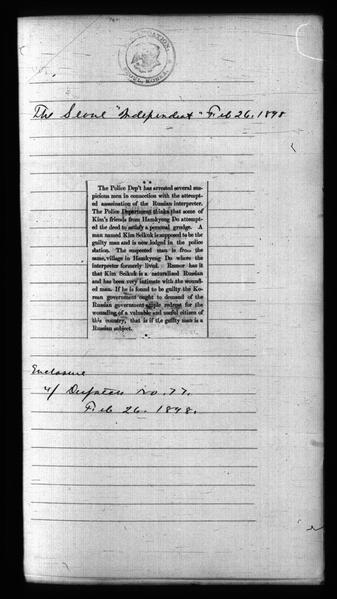 LEGATION
SEOUL, KOREA.
The Seoul "Independent" Feb 26, 1898
The Police Dep't has arrested several sus-
picious men in connection with the attempt-
ed assasination of the Russian interpreter.
The Police Department thinks that some of
Kim's friends from Hamkyong Do attempt-
ed the deed to satisfy a personal grudge. A
man named Kim Seikuk is supposed to be the
guilty man and is now lodged in the police
station. The suspected man is from the
same village in Hamkyong Do where the
interpreter formerly lived. Rumor has it
that Kim Seikuk is a naturalized Russian
and has been very intimate with the wound-
ed man. If he is found to be guilty the Ko-
rean government ought to demand of the
Russian government ample redress for the
wounding of a valuable and useful citizen of
this country, that is if the guilty man is a
Russian subject.
Enclosure
w/ Dispatch No. 77.
Feb 26. 1898.